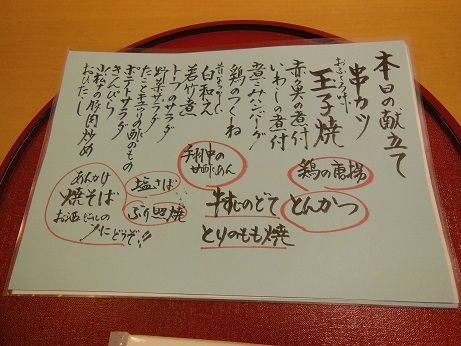 本日の献立て
串カツ
おふくろの味
玉子焼
赤魚の煮付
いわしの煮付
煮こみハンバーグ
鶏のつくね
昔なつかしい
白和え
若竹煮
トーフのサラダ
野菜サラダ
たこと玉ネギの酢のもの
ポテトサラダ
きんぴら
小松菜の豚肉炒め
おひたし
鶏の唐揚
とんかつ
手羽中の
甘酢あん
牛すじのどて
とりのもも焼
塩さば
ぶり照焼
あんかけ
焼そば
お酒どこしの
〆にどうぞ!!